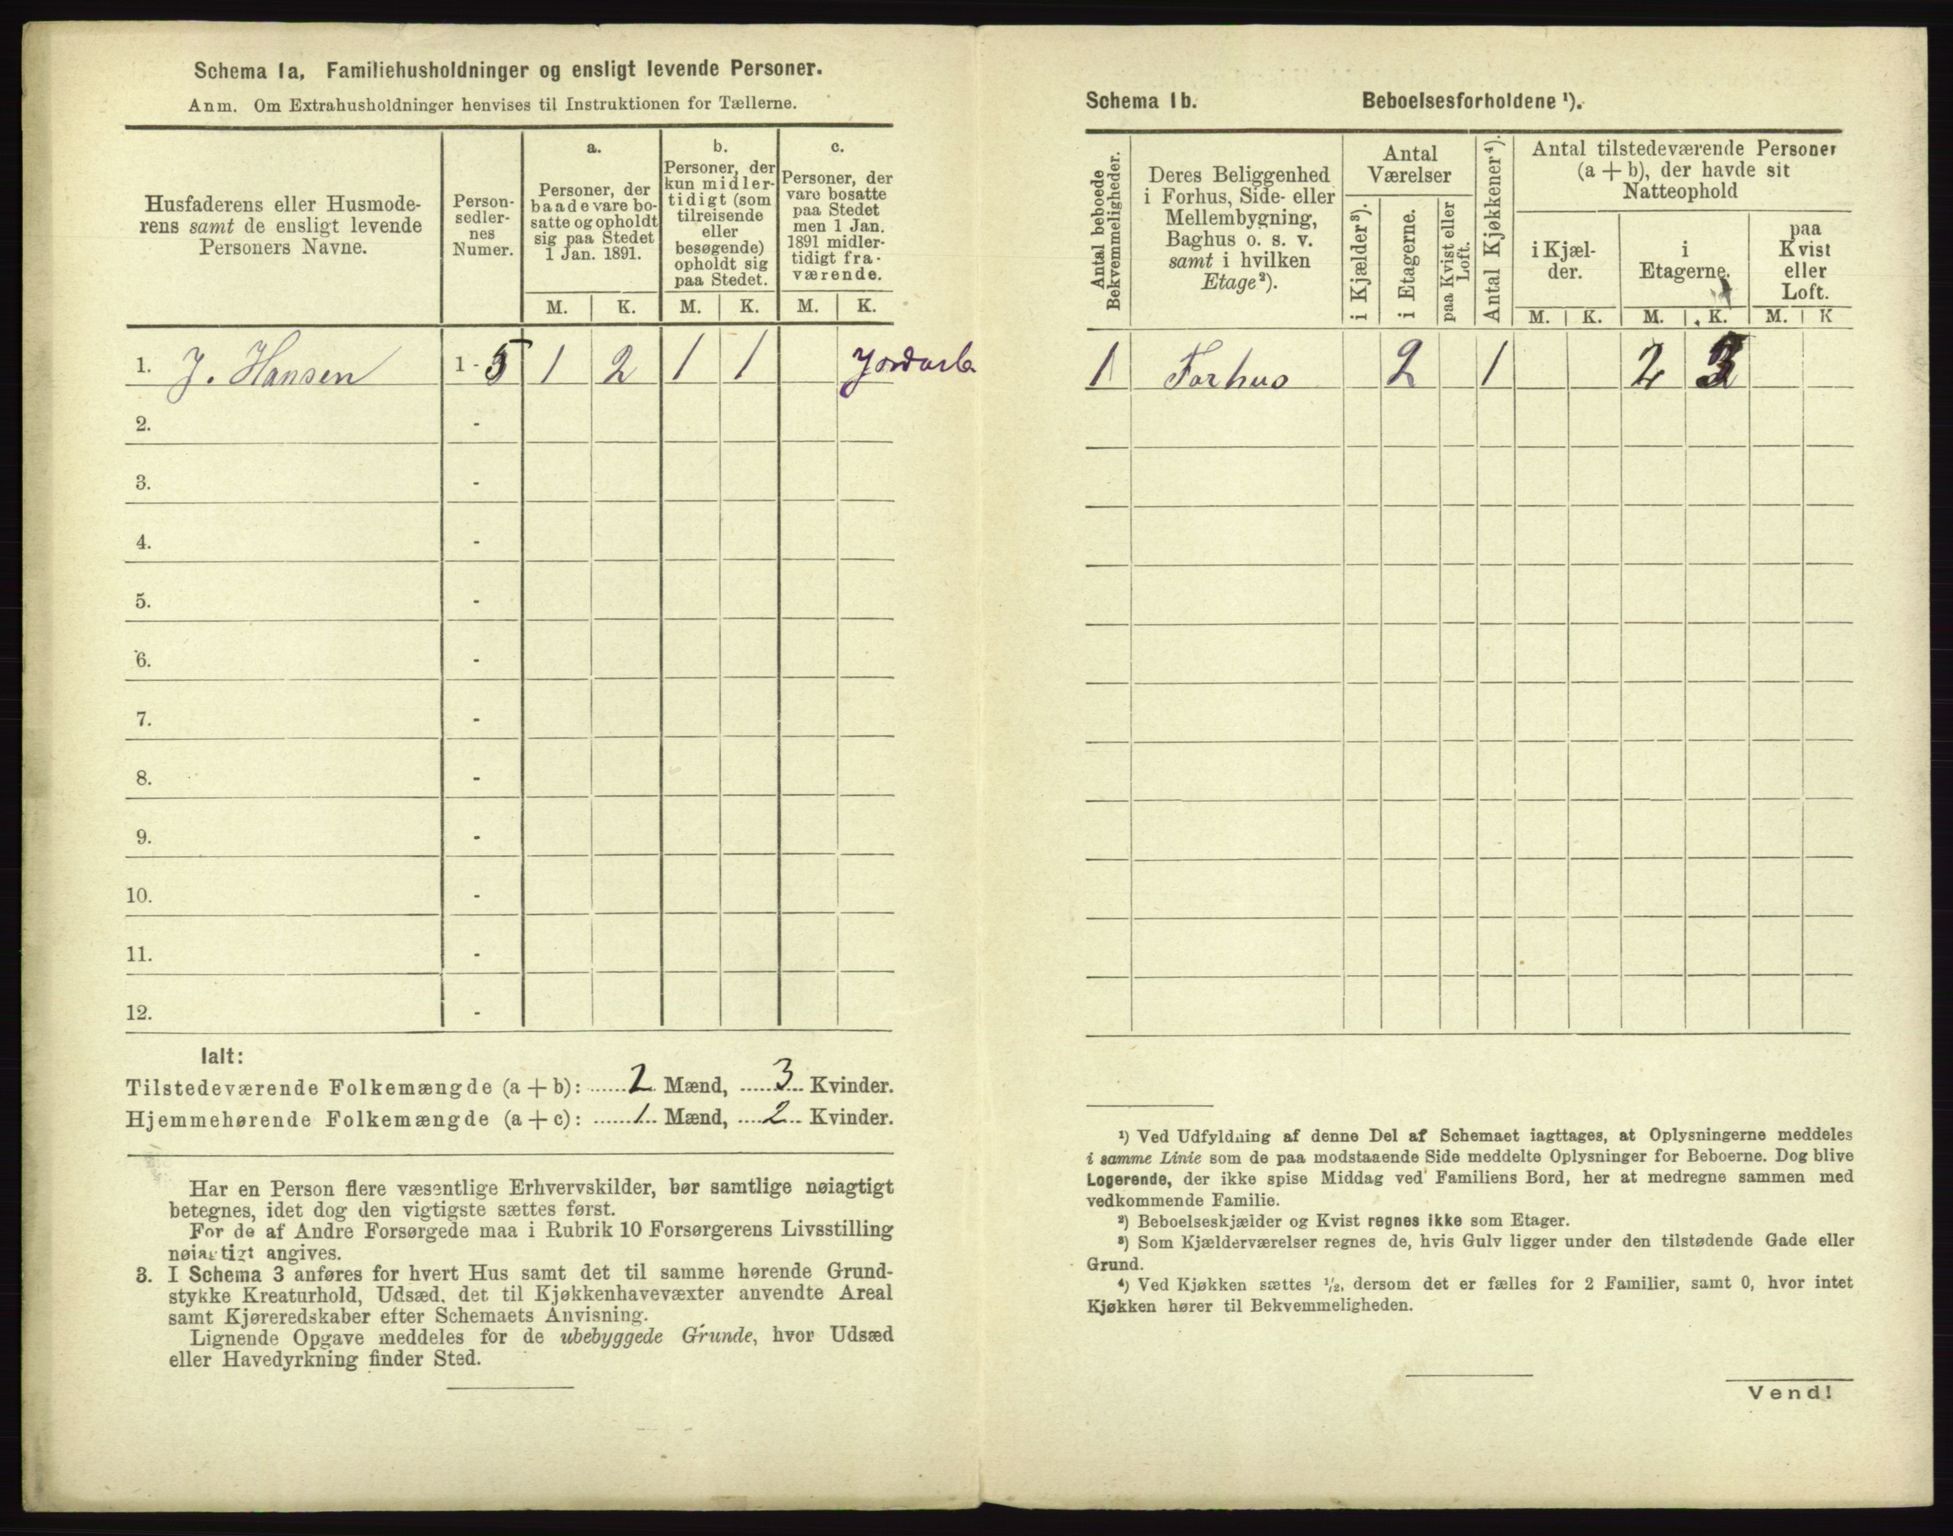 Schema 1a, Familiehusholdninger og ensligt levende Personer.
Anm. Om Extrahusholdninger henvises til Instruktionen for Tællerne.
Husfaderens eller Husmode-
rens samt de ensligt levende
Personers Navne.
Person-
sedler-
nes
Numer.
a.
Personer, der
baade vare bo-
satte og opholdt
sig paa Stedet
1 Jan. 1891.
b.
Personer, der
kun midler-
tidigt (som
tilreisende
eller
besøgende)
opholdt sig
paa Stedet.
c.
Personer, der
vare bosatte
paa Stedet
men 1 Jan.
1891 midler-
tidigt fra-
værende.
M. K. M. K. M. K.
1. J. Hansen 1-5 1 2 1 1 Jordarb.
2. -
3. -
4. -
5. -
6. -
7. -
8. -
9. -
10. -
11. -
12. -
Ialt:
Tilstedeværende Folkemængde (a + b): 2 Mænd, 3 Kvinder.
Hjemmehørende Folkemængde (a + c): 1 Mænd, 2 Kvinder.
Har en Person flere væsentlige Erhvervskilder, bør samtlige nøiagtigt
betegnes, idet dog den vigtigste sættes først.
For de af Andre Forsørgede maa i Rubrik 10 Forsørgerens Livsstilling
nøiagtigt angives.
3. I Schema 3 anføres for hvert Hus samt det til samme hørende Grund-
stykke Kreaturhold, Udsæd, det til Kjøkkenhavevæxter anvendte Areal
samt Kjøreredskaber efter Schemaets Anvisning.
Lignende Opgave meddeles for de ubebyggede Grunde, hvor Udsæd
eller Havedyrkning finder Sted.
Schema 1b. Beboelsesforholdene ¹).
Antal beboede
Bekvemmeligheder.
Deres Beliggenhed
i Forhus, Side- eller
Mellembygning,
Baghus o. s. v.
samt i hvilken
Etage²).
Antal
Værelser
i Kjælder³).
i Etagerne.
paa Kvist eller
Loft.
Antal Kjøkkener⁴).
Antal tilstedeværende Personer
(a + b), der havde sit
Natteophold
i Kjæl-
der.
i
Etagerne.
paa
Kvist
eller
Loft.
M. K. M. K. M. K
1 Forhus 2 1 2 3
¹) Ved Udfyldning af denne Del af Schemaet iagttages, at Oplysningerne meddeles
i samme Linie som de paa modstaaende Side meddelte Oplysninger for Beboerne. Dog blive
Logerende, der ikke spise Middag ved Familiens Bord, her at medregne sammen med
vedkommende Familie.
²) Beboelseskjælder og Kvist regnes ikke som Etager.
³) Som Kjælderværelser regnes de, hvis Gulv ligger under den tilstødende Gade eller
Grund.
⁴) Ved Kjøkken sættes ½, dersom det er fælles for 2 Familier, samt 0, hvor intet
Kjøkken hører til Bekvemmeligheden.
Vend!